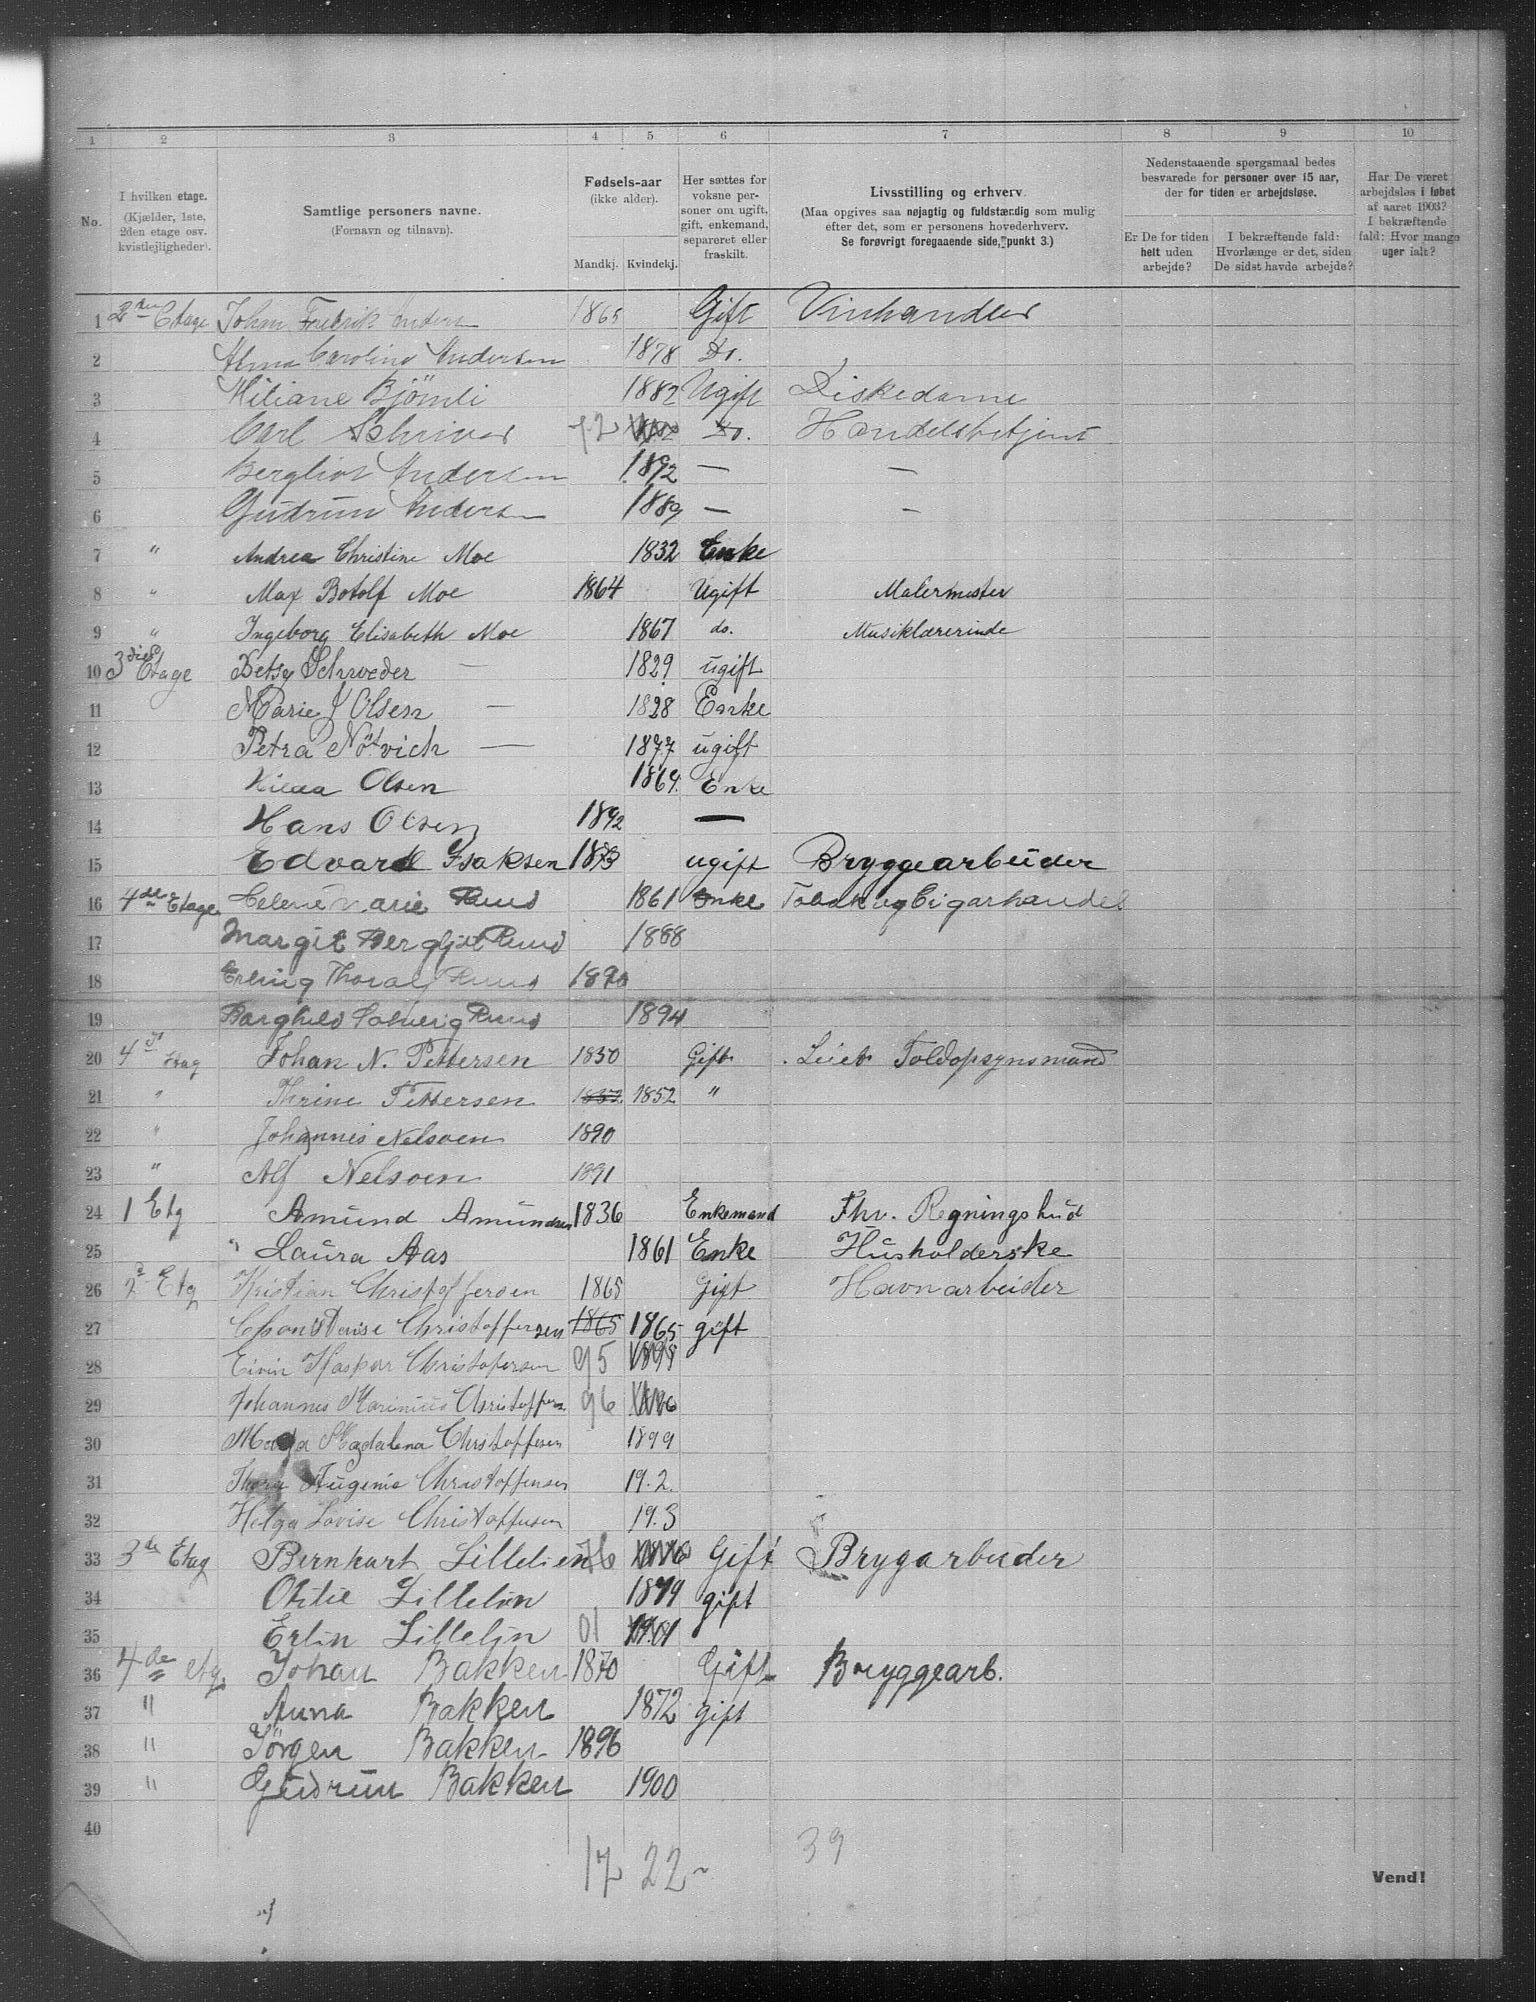 1 2 3 4 5 6 7 8 9 10
No.
I hvilken etage. (Kjælder, 1ste, 2den etage osv. kvistlejligheder).
Samtlige personers navne. (Fornavn og tilnavn).
Fødsels-aar (ikke alder).
Mandkj. Kvindekj.
Her sættes for voksne personer om ugift, gift, enkemand, separeret eller fraskilt.
Livsstilling og erhverv.
(Maa opgives saa nøjagtig og fuldstændig som mulig efter det, som er personens hovederhverv.
Se forøvrigt foregaaende side, punkt 3.)
Nedenstaaende spørgsmaal bedes besvarede for personer over 15 aar, der for tiden er arbejdsløse.
Er De for tiden helt uden arbejde?
I bekræftende fald: Hvorlænge er det, siden De sidst havde arbejde?
Har De været arbejdsløs i løbet af aaret 1903? I bekræftende fald: Hvor mange uger ialt?
1 2den Etage Johan Fredrik Anders 1865 Gift Vinhandler
2 Alma Caroline Andersen 1878 Do.
3 Miliane Bjömli 1882 Ugift Diskedame
4 Carl Schriver 72 Do. Handelsbetjent
5 Bergliot Andersen 1892 — —
6 Gudrun Andersen 1889 — —
7 " Andrea Christine Moe 1832 Enke
8 " Max Botolf Moe 1864 Ugift Malermester
9 " Ingeborg Elisabeth Moe 1867 do. Musiklærerinde
10 3die Etage Betsy Schrøeder — 1829 ugift
11 Marie J Olsen — 1828 Enke
12 Petra Nötvich — 1877 ugift
13 Olsen 1869. Enke
14 Hans Olsen 1892 —
15 Edvard Isaksen 1873 ugift Bryggearbeider
16 4de Etage Helene Marie Ruud 1861 Enke Tobak og Cigarhandel
17 Margit Bergljot Ruud 1888
18 Erling Thoralf Ruud 1890
19 Borghild Solveig Ruud 1894
20 4de Etag Johan N. Pettersen 1850 Gift Toldopsynsmand
21 " Thrine Pettersen 1852 1852 "
22 " Johannes Nelsoen 1890
23 " Alf Nelsoen 1891
24 1 Etg Amund Amundsen 1836 Enkemand Fhv. Regningsbud
25 " Laura Aas 1861 Enke Husholderske
26 2 Etg Kristian Christoffersen 1865 Gift Havnarbeider
27 Christoffersen 1865 1865 gift
28 Eivin Kaspar Christofersen 95 1895
29 Johannes Marinius Christoffersen 96
30 Magdalena Christoffersen 1899
31 Thora Augenie Christoffersen 19.2.
32 Helga Lovise Christoffersen 19.3
33 3de Etag Bernhart Lillelien 76 Gift Brygarbeider
34 Otilie Lillelien 1879 gift
35 Erlin Lillelin 01 1901
36 4de etg Johan Bakken 1870 Gift Bryggearb.
37 " Anna Bakken 1872 gift
38 " Jörgen Bakken 1896
39 " Gudrun Bakken 1900
40
17 22 39
Vend!